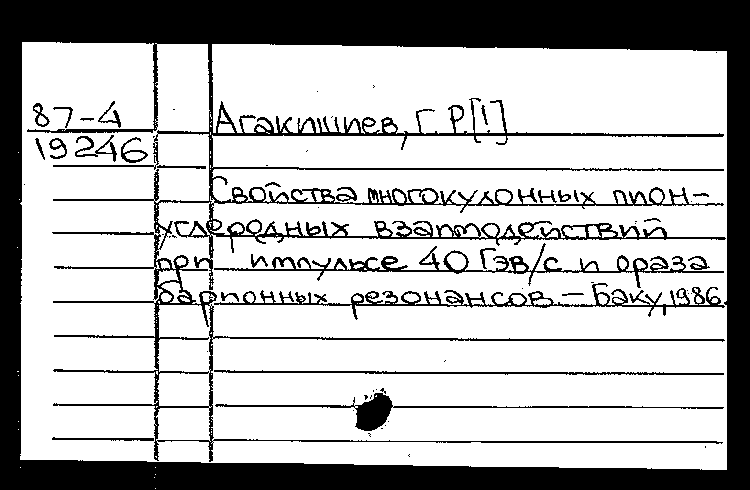 87-4
19246
Агакишиев, Г.Р.[!]
Свойства многокулонных пион-
углеродных взаимодействий
при импульсе 40 Гэв/с и
барионных резонансов. — Баку, 1986.